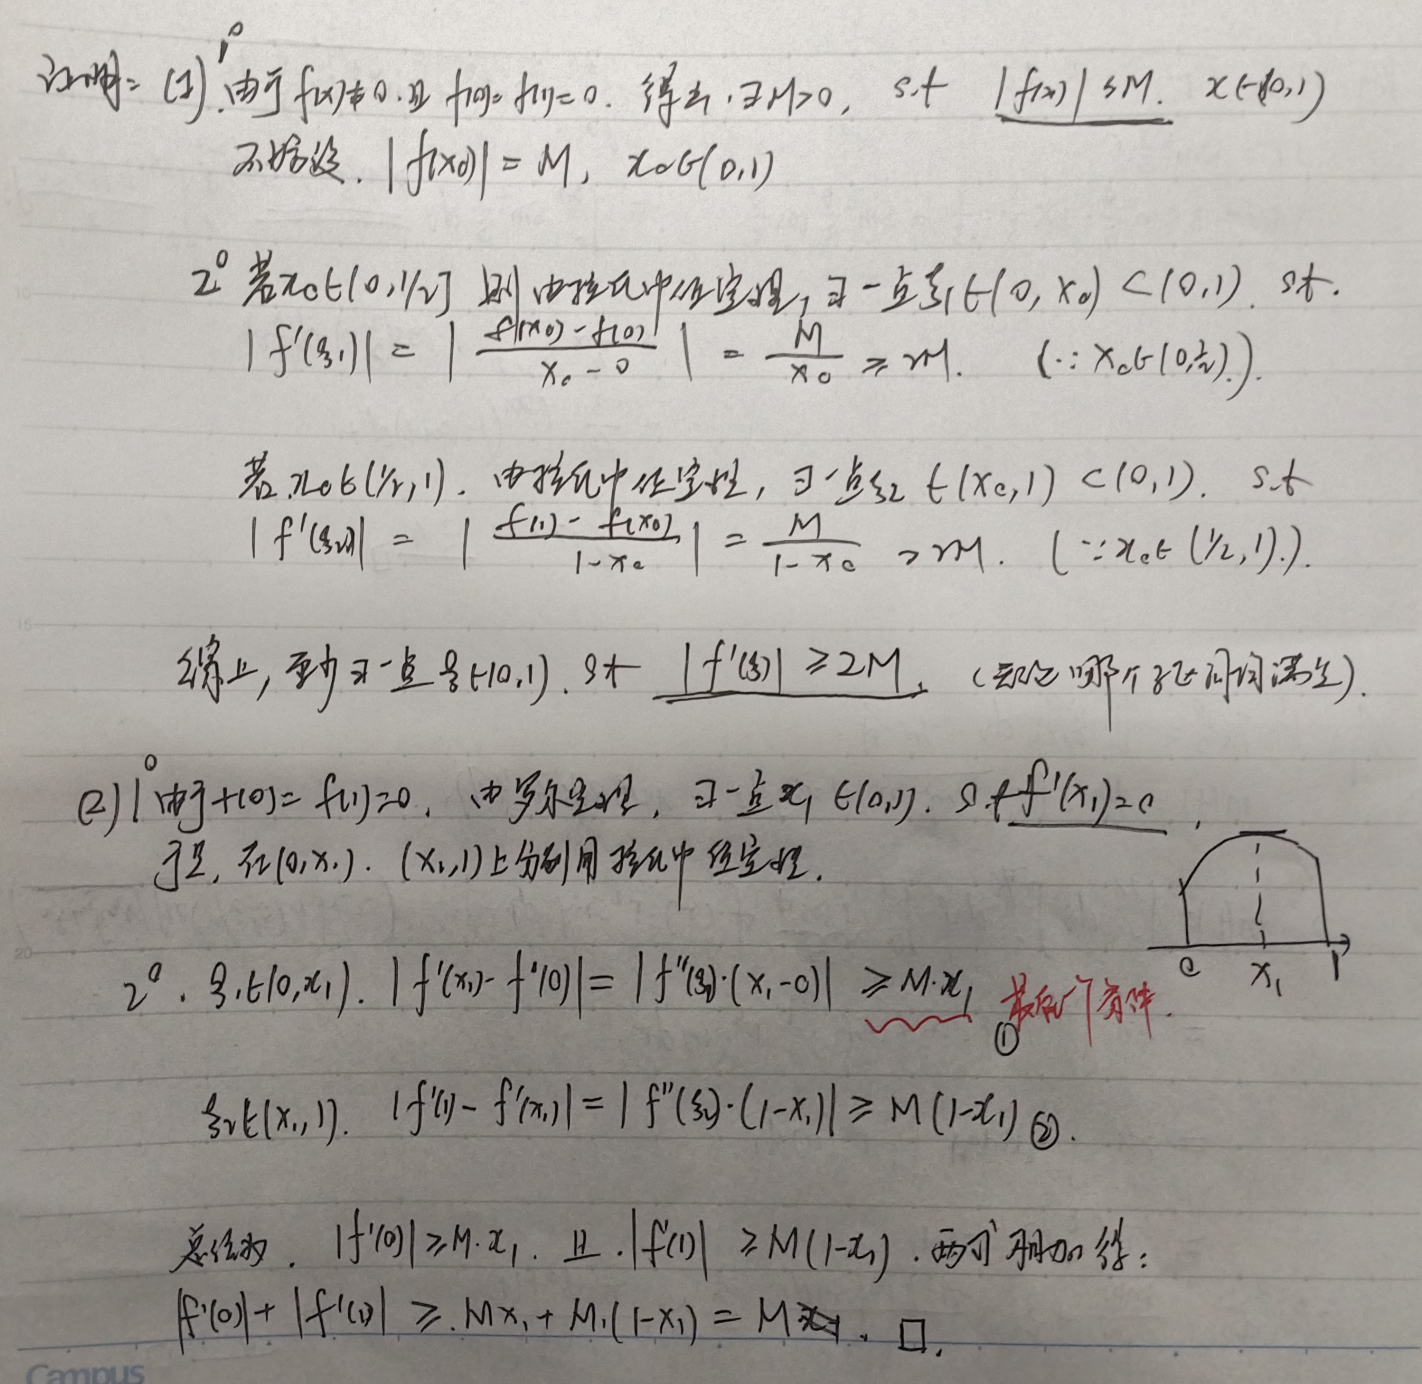 证明: (1) 1° 由于f(x)≢0.且 f(0)=f(1)=0. 得出.∃M>0, s.t |f(x)|≤M. x∈(0,1)
不妨设. |f(x0)|=M, x0∈(0,1)
2° 若x0∈(0,1/2] 则 由拉氏中值定理,∃一点ξ1∈(0,x0)⊂(0,1). st.
|f'(ξ1)| = |(f(x0)-f(0))/(x0-0)| = M/x0 ≥2M. (∵x0∈(0,1/2).).
若x0∈(1/2,1). 由拉氏中值定理, ∃一点ξ2∈(x0,1)⊂(0,1). s.t
|f'(ξ2)| = |(f(1)-f(x0))/(1-x0)| = M/(1-x0) >2M. (∵x0∈(1/2,1).).
综上,至少∃一点ξ∈(0,1). st |f'(ξ)|≥2M. (无论哪个区间均满足).
(2) 1° 由于f(0)=f(1)=0. 由罗尔定理, ∃一点x1∈(0,1). s.t f'(x1)=0.
于是,在(0,x1).(x1,1)上分别用拉氏中值定理.
0 x1 1
2°. ξ1∈(0,x1). |f'(x1)-f'(0)|=|f''(ξ1)·(x1-0)| ≥M·x1 ① 最后一个条件.
ξ2∈(x1,1). |f'(1)-f'(x1)|=|f''(ξ2)·(1-x1)|≥M(1-x1) ②.
总结为. |f'(0)|≥M·x1. 且.|f'(1)| ≥M(1-x1).两个相加得:
|f'(0)|+|f'(1)| ≥.Mx1+M.(1-x1)=M. □.
Campus